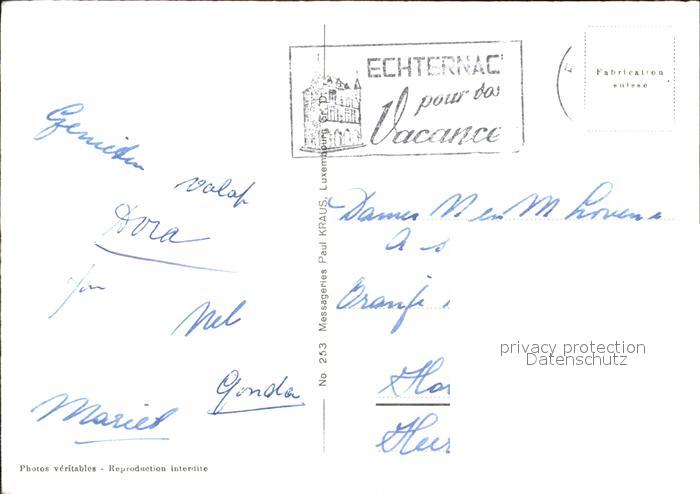 ECHTERNAC
pour vos
Vacance
Fabrication
suisse
Genieten
volop
Dora
Nel
Gonda
Mariet
No 253 Messageries Paul KRAUS, Luxembourg Gr.D.
Dames N en M
A
Oranje
privacy protection
Datenschutz
Photos véritables - Reproduction interdite